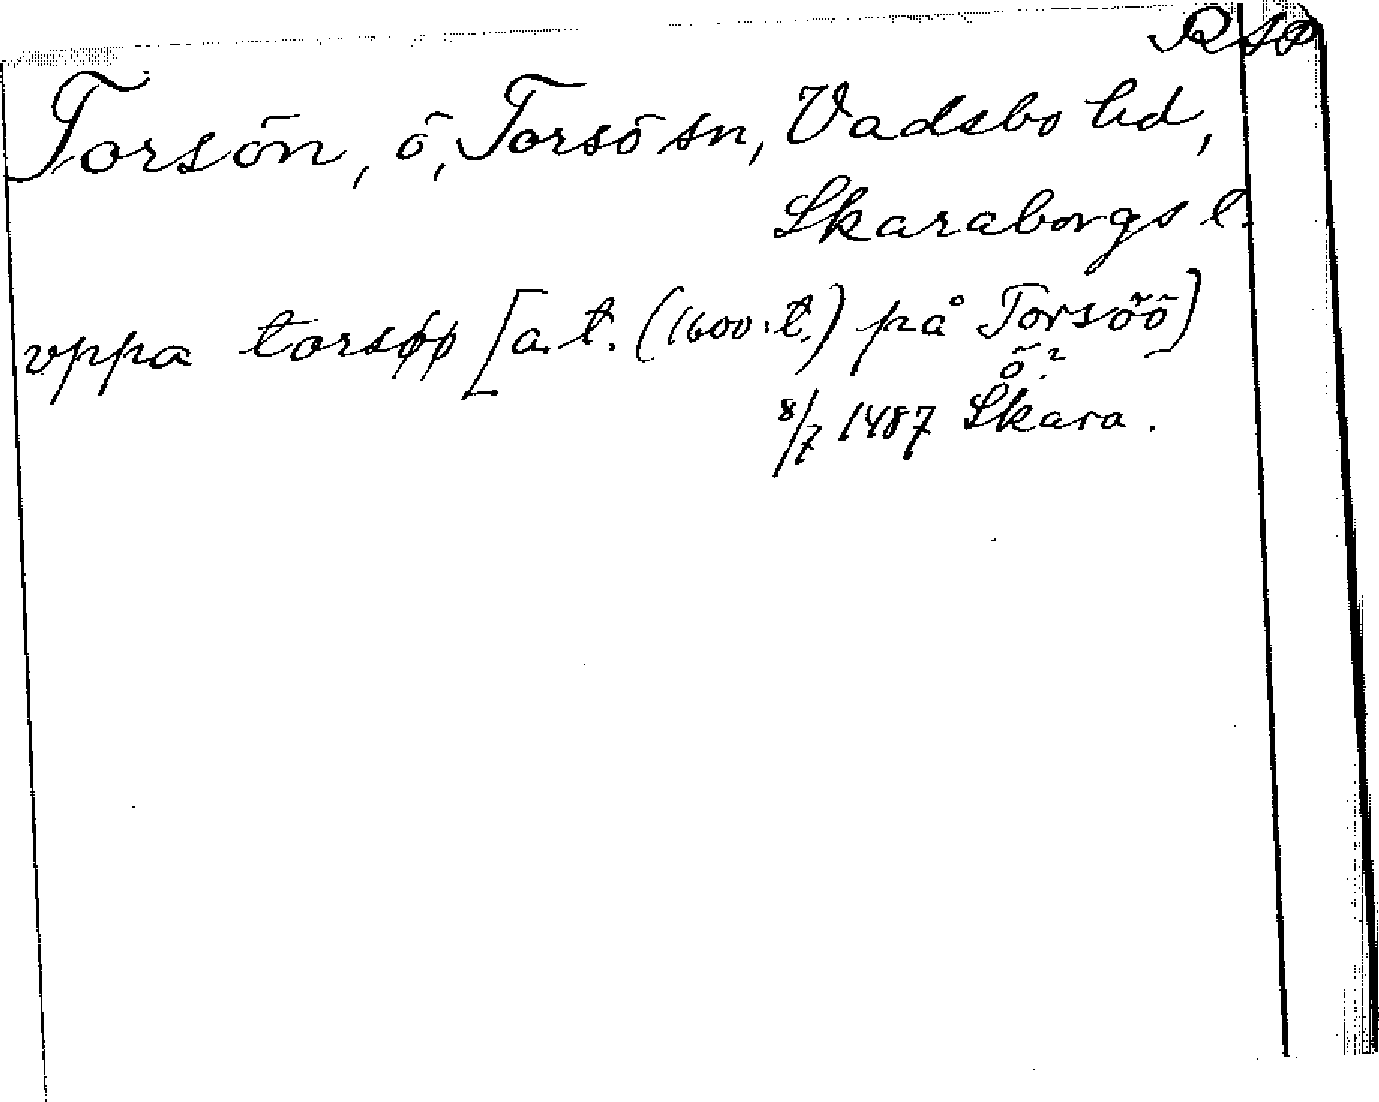 RAP
Torsön, ö, Torsö sn, Vadsbo hd,
Skaraborgs l.
vppa torsøø [a.t. (1600-t.) på Torsöö]
ö?
8/7 1487 Skara.